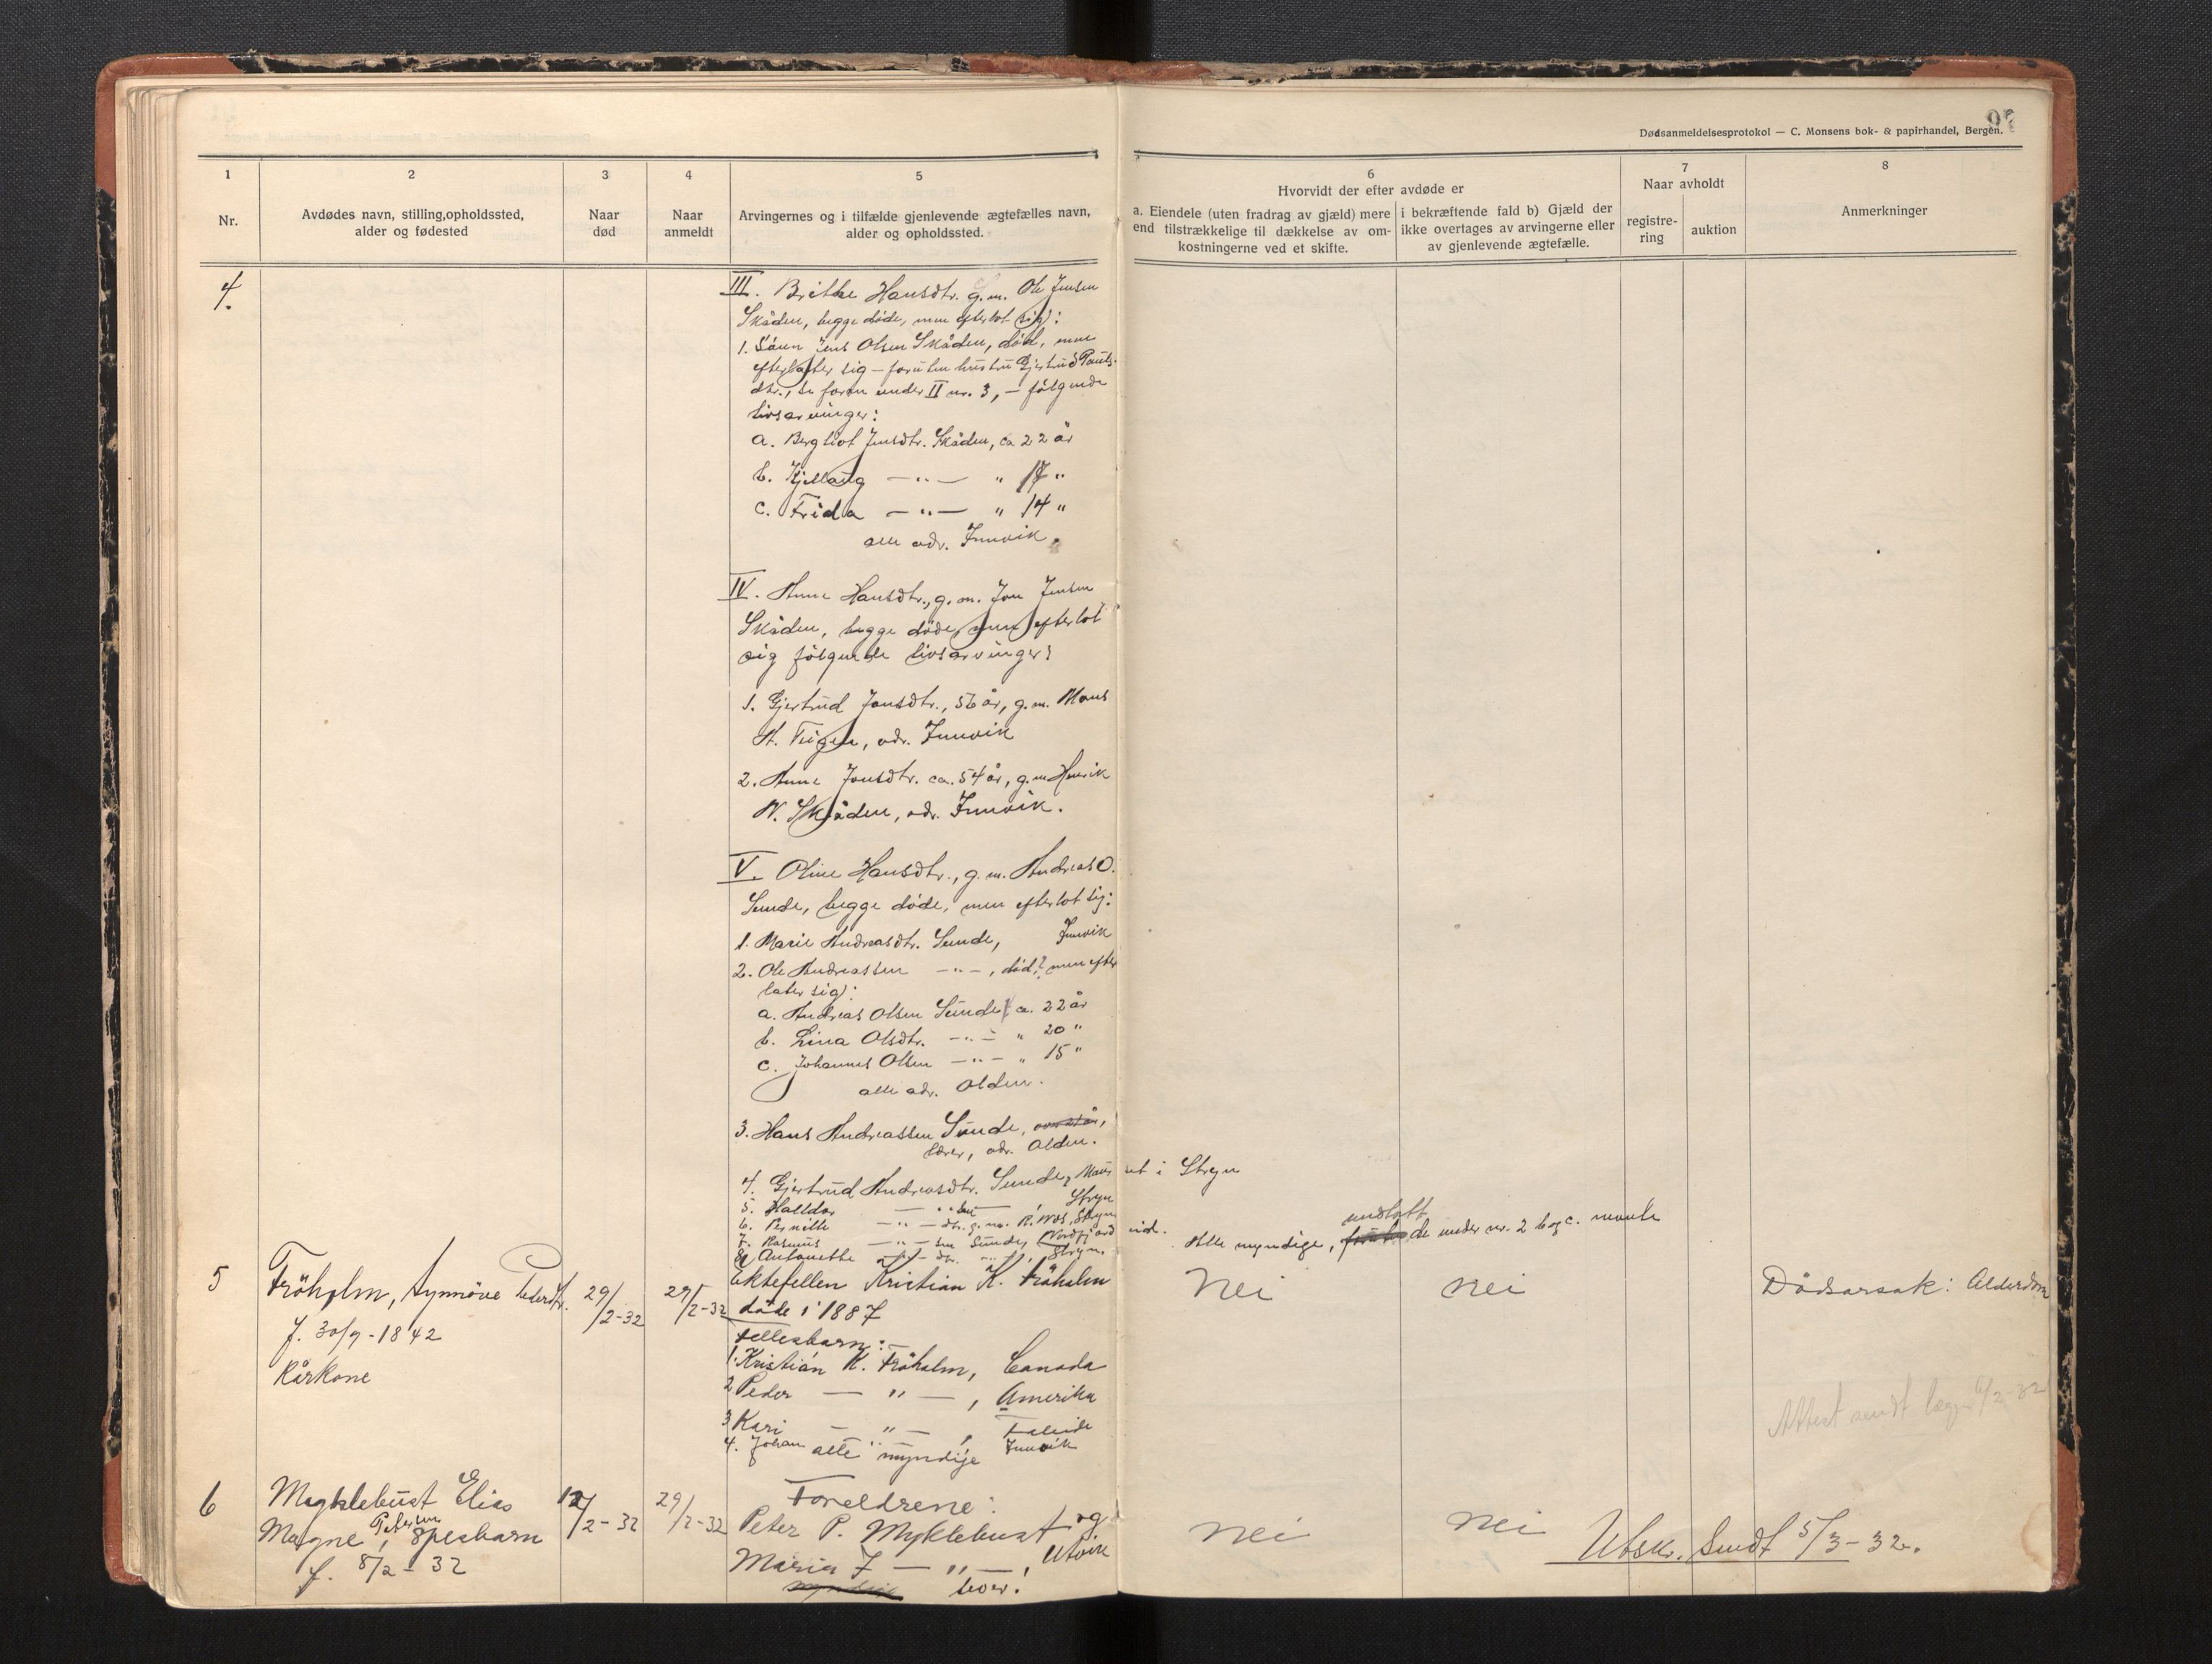 Dødsanmeldelsesprotokol — C. Monsens bok- & papirhandel, Bergen.
1
Nr.
2
Avdødes navn, stilling, opholdssted,
alder og fødested
3
Naar
død
4
Naar
anmeldt
5
Arvingernes og i tilfælde gjenlevende ægtefælles navn,
alder og opholdssted.
6
Hvorvidt der efter avdøde er
a. Eiendele (uten fradrag av gjæld) mere
end tilstrækkelige til dækkelse av om-
kostningerne ved et skifte.
i bekræftende fald b) Gjæld der
ikke overtages av arvingerne eller
av gjenlevende ægtefælle.
7
Naar avholdt
registre-
ring
auktion
8
Anmerkninger
4.
III. Brithe Hansdtr. g.m. Ole Jensen
Skåden, begge døde, men efterlot sig:
1. Sönn Jens Olsen Skåden, död, men
efterlater sig – foruten hustru Gjertrud Pauls-
dtr., se foran under II nr. 3, – fölgende
livsarvinger:
a. Bergliot Jensdtr. Skåden, ca 22 år
b. Kjellaug — " — " 17 "
c. Frida — " — " 14 "
alle adr. Innvik.
IV. Anne Hansdtr., g.m. Jon Jensen
Skåden, begge döde, men efterlot
sig fölgende livsarvinger:
1. Gjertrud Jonsdtr., 56 år, g.m. Mons
A. Teigen, adr. Innvik
2. Anne Jonsdtr. ca. 54 år, g.m. Henrik
N. Skåden, adr. Innvik.
V. Oline Hansdtr., g.m. Andreas O.
Sunde, begge døde, men efterlot sig:
1. Marie Andreasdtr. Sunde, Innvik
2. Ole Andreassen — " — , död, men efter
later sig:
a. Andreas Olsen Sunde ca. 22 år
b. Lina Olsdtr. — " — " 20 "
c. Johannes Olsen — " — " 15 "
alle adr. Olden.
3. Hans Andreassen Sunde,
lærer, adr. Olden.
4. Gjertrud Andreasdtr. Sunde, i Stryn
5. Halldor — " — Stryn
6. Pernille — " — dtr. g.m. R. Stryn
7. Rasmus — " — sen Sunde, Nordfjordeid.
8. Antonette — " — dtr. — " — , Stryn.
Alle myndige, undtatt de under nr. 2 b og c. nevnte
5
Fröholm, Synnöve Pedersdtr.
f. 30/9 - 1842
Kårkone
29/2-32
29/2-32
Ektefellen Kristian K. Fröholm
döde i 1887
Fellesbarn:
1. Kristian K. Fröholm, Canada
2 Peder — " — , Amerika
3 Kari — " — ,
4. Johan " Innvik
alle myndige
Nei
Nei
Dødsarsak: Alderdom
Attest sendt 6/2-32
6
Magne Petersen, spebarn
f. 8/2 - 32
12/2-32
29/2-32
Foreldrene:
Peter P. Myklebust og
Maria J — " — Utvik
lever!
Nei
Nei
Utskr. Sendt 5/3-32.